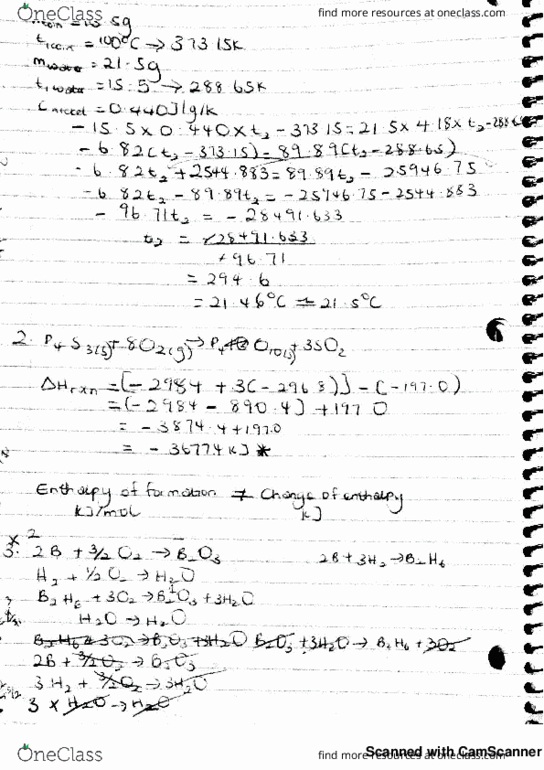 OneClass find more resources at oneclass.com
15.5g
t1coin = 100°C → 373.15K
mwater = 21.5g
t1water = 15.5 → 288.65K
Cnickel = 0.440J/g/k
- 15.5 x 0.440 x t2 - 373.15 = 21.5 x 4.18 x t2 - 288.65
- 6.82(t2 - 373.15) = 89.89(t2 - 288.65)
- 6.82t2 + 2544.883 = 89.89t2 - 25946.75
- 6.82t2 - 89.89t2 = - 25946.75 - 2544.883
- 96.71t2 = - 28491.633
t2 = -28491.633
+96.71
= 294.6
= 21.46°C = 21.5°C
2. P4S3(s) + 8O2(g) → P4O10(s) + 3SO2
ΔHrxn = [-2984 + 3(-296.8)] - (-197.0)
= (-2984 - 890.4] + 197.0
= - 3874.4 + 197.0
= - 3677.4 kJ *
Enthalpy of formation ≠ Change of enthalpy
kJ/mol kJ
x 2
3. 2B + 3/2 O2 → B2O3 2B + 3H2 → B2H6
H2 + 1/2 O2 → H2O
B2H6 + 3O2 → B2O3 + 3H2O
H2O → H2O
B2H6 + 3O2 → B2O3 + 3H2O B2O3 + 3H2O → B2H6 + 3O2
2B + 3/2O2 → B2O3
3H2 + 3/2O2 → 3H2O
3 x H2O → H2O
Scanned with CamScanner
OneClass find more resources at oneclass.com